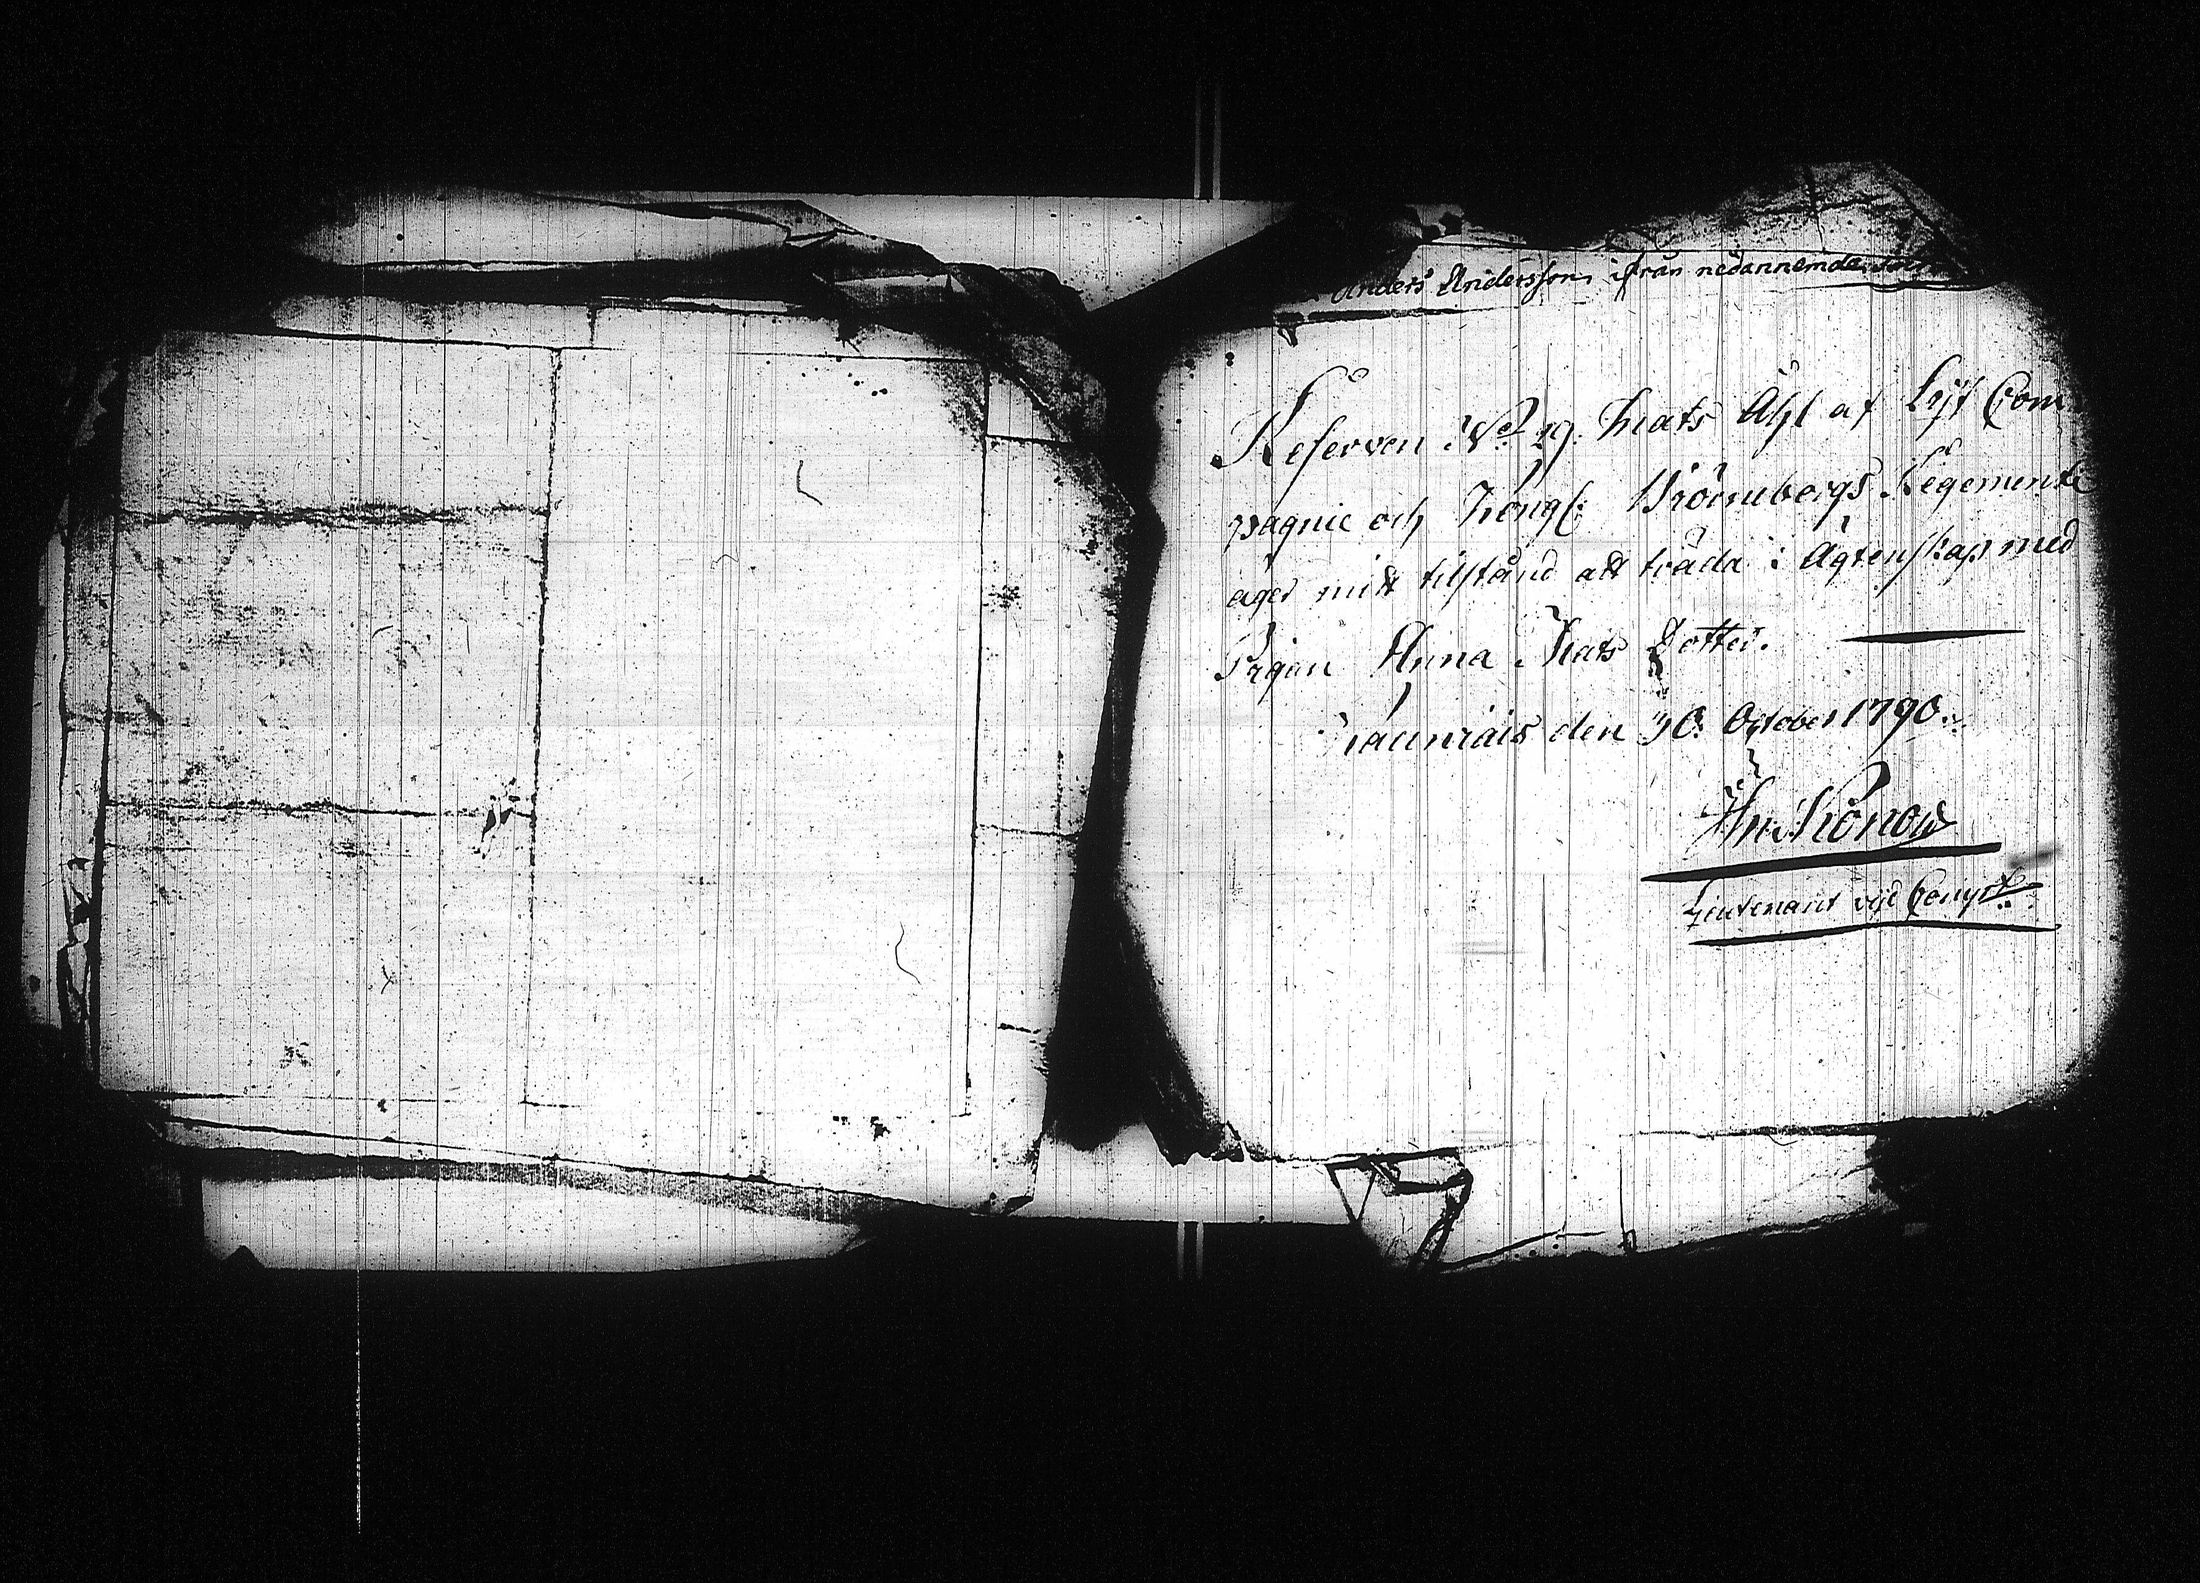 Anders Andersson ifrån nedannemda
Reserven No 19 Mats Åhl af Lijf Com
pagnie och Kongl: Kronobergs Regemente
äger mitt tilstånd att träda i Ägtenskap med
Pigan Anna Mats Dotter.
den 30 October 1790.
Lieutenant vid Compt: